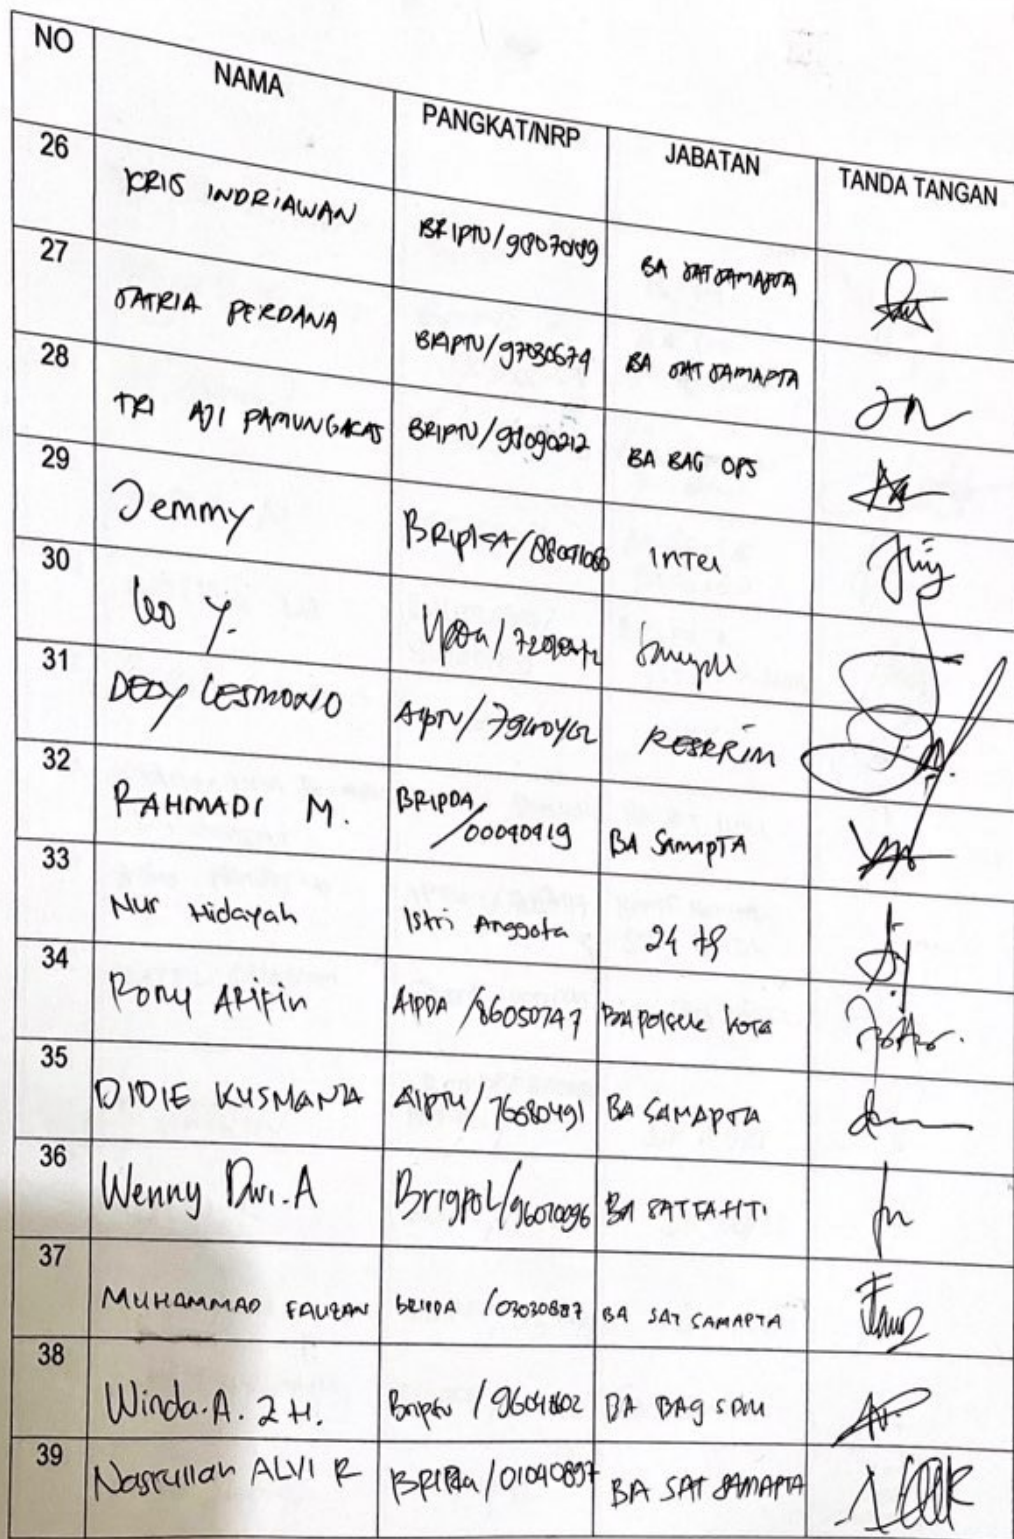 NO NAMA PANGKAT/NRP JABATAN TANDA TANGAN
26 KRIS INDRIAWAN BRIPTU/98070189 BA SAT SAMAPTA
27 SATRIA PERDANA BRIPTU/97030674 BA SAT SAMAPTA
28 TRI AJI PAMUNGKAS BRIPTU/98090212 BA BAG OPS
29 Jemmy BRIPKA/ INTEL
30 Leo Y.
31 DEDY LESMONO AIPTU/ RESKRIM
32 RAHMADI M. BRIPDA
/00040419 BA SAMAPTA
33 Nur Hidayah Istri Anggota 24 
34 Rony ARIFIN AIPDA /86050747 BA POLSEK KOTA
35 DIDIE KUSMANA AIPTU/76080491 BA SAMAPTA
36 Wenny Dwi.A Brigpol/96070096 BA SAT TAHTI
37 MUHAMMAD FAUZAN BRIPDA /03030887 BA SAT SAMAPTA
38 Winda.A.Z.H. Briptu / BA BAG SDM
39 Nasrullah ALVI R BRIPDA/01040897 BA SAT SAMAPTA